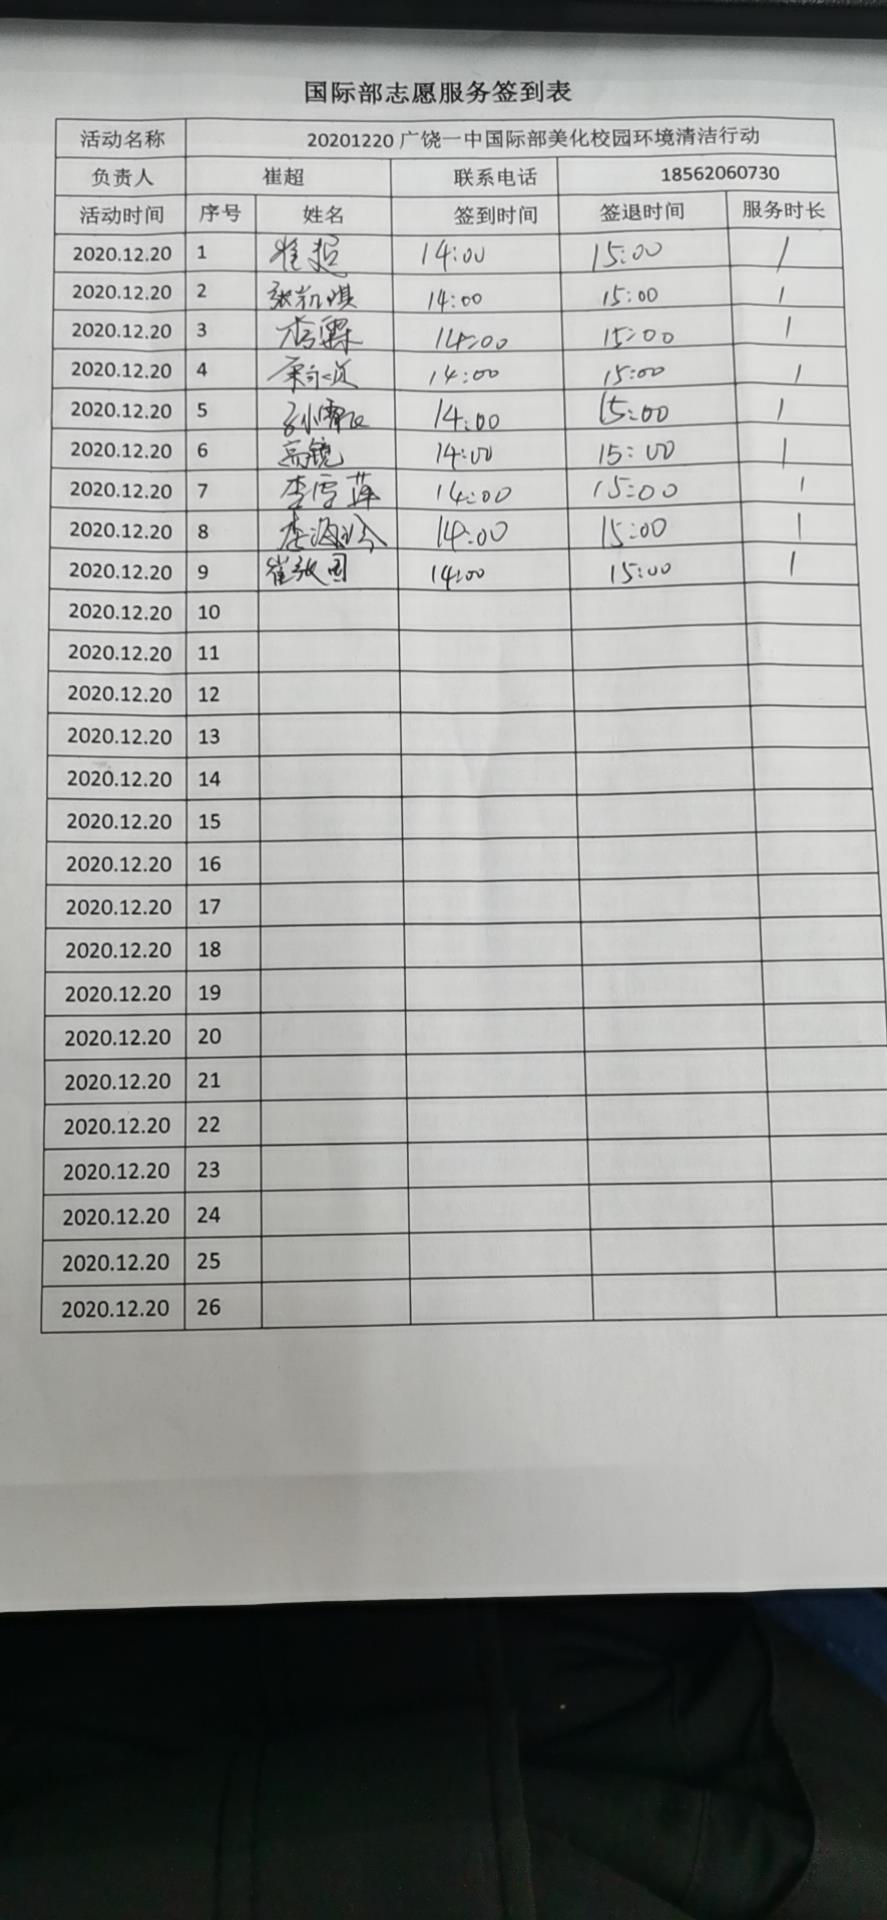 国际部志愿服务签到表
活动名称 20201220 广饶一中国际部美化校园环境清洁行动
负责人 崔超 联系电话 18562060730
活动时间 序号 姓名 签到时间 签退时间 服务时长
2020.12.20 1 崔超 14:00 15:00 1
2020.12.20 2 张凯琪 14:00 15:00 1
2020.12.20 3 李霖 14:00 15:00 1
2020.12.20 4 14:00 15:00 1
2020.12.20 5 14:00 15:00 1
2020.12.20 6 高镜 14:00 15:00 1
2020.12.20 7 李雪萍 14:00 15:00 1
2020.12.20 8 李海玲 14:00 15:00 1
2020.12.20 9 崔敬国 14:00 15:00 1
2020.12.20 10
2020.12.20 11
2020.12.20 12
2020.12.20 13
2020.12.20 14
2020.12.20 15
2020.12.20 16
2020.12.20 17
2020.12.20 18
2020.12.20 19
2020.12.20 20
2020.12.20 21
2020.12.20 22
2020.12.20 23
2020.12.20 24
2020.12.20 25
2020.12.20 26